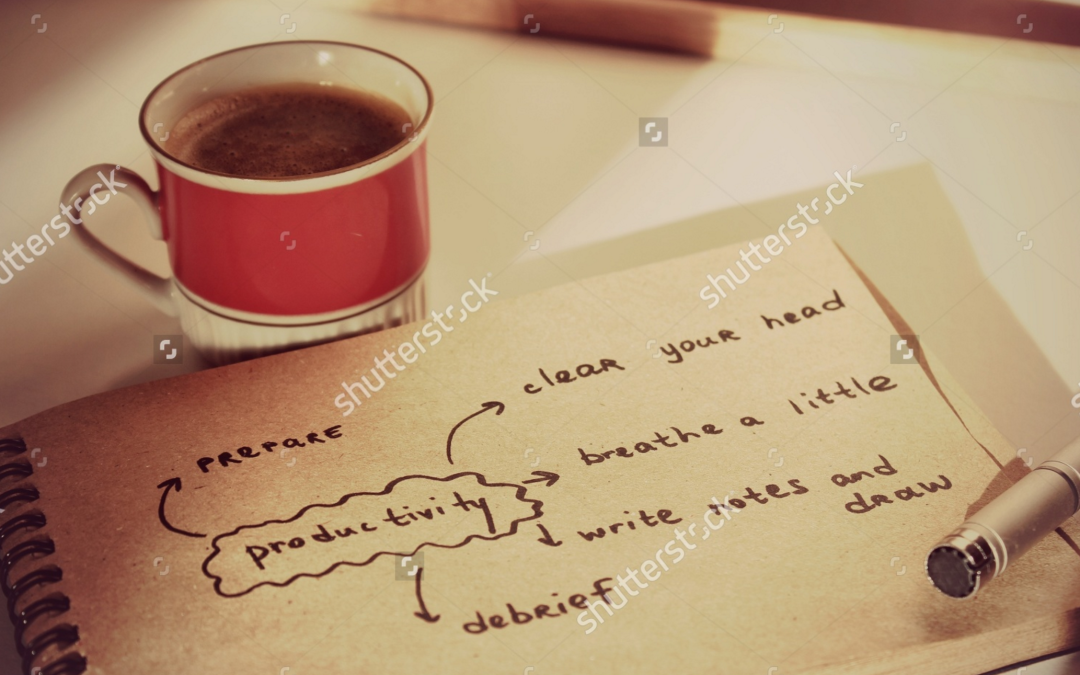 clear your head
breathe a little
prepare
productivity
write notes and
draw
debrief
shutterstock
shutterstock
shutterstock
shutterstock